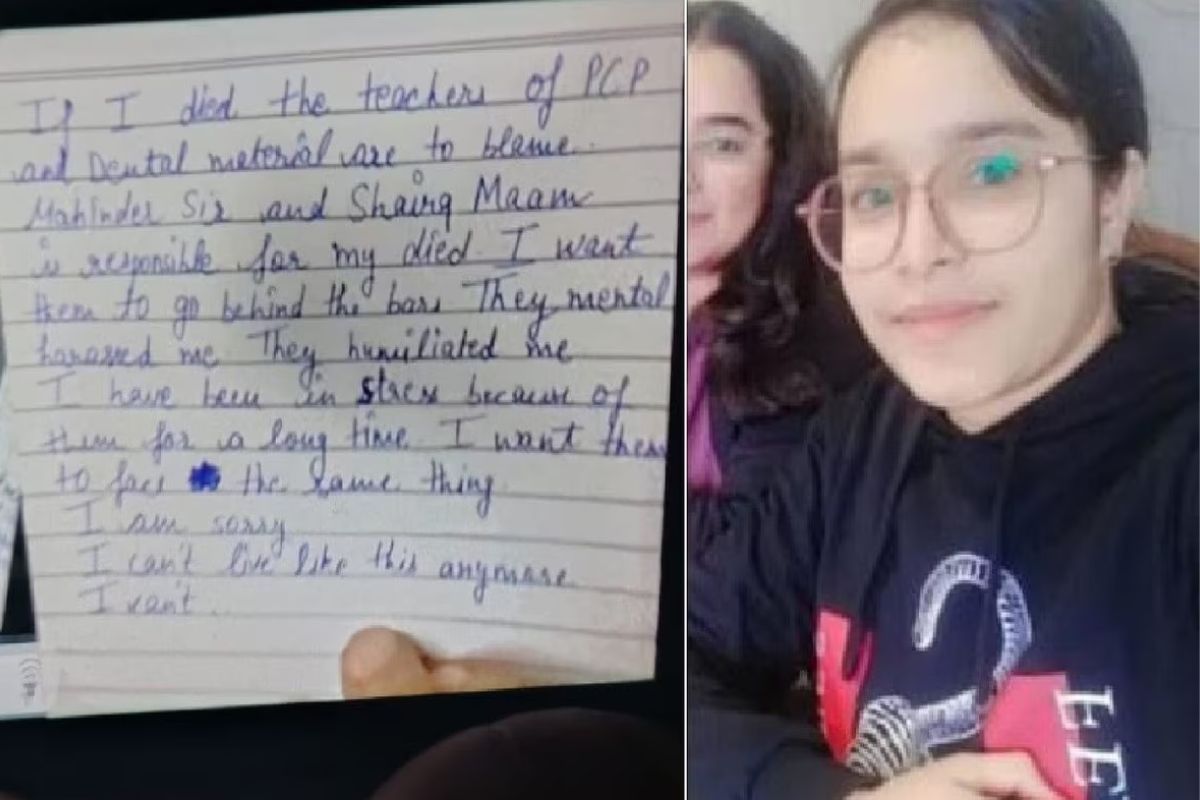 If I died the teachers of PCP
and Dental material are to blame.
Mahinder Sir and Shairg Maam
is responsible for my died. I want
them to go behind the bars They mental
harassed me They humiliated me
I have been in stress because of
them for a long time. I want them
to face the same thing.
I am sorry
I can't live like this anymore
I can't.
LEE